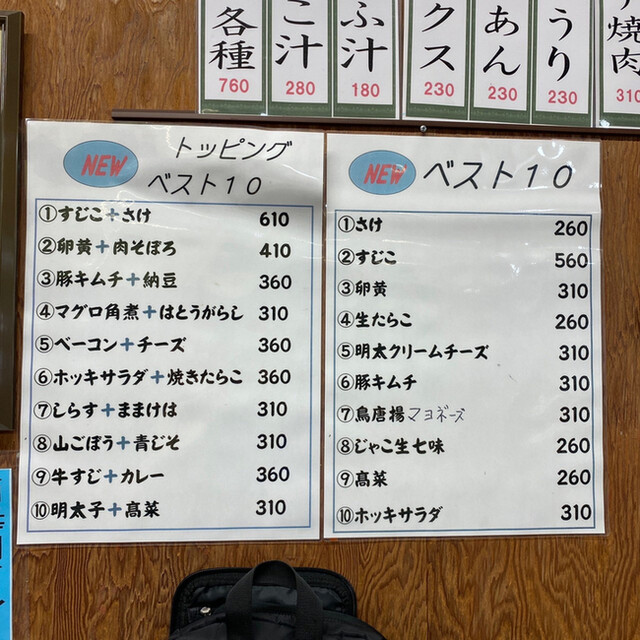 各種
760
こ汁
280
ふ汁
180
クス
230
あん
230
うり
230
焼肉
310
NEW
トッピング
ベスト10
①すじこ+さけ 610
②卵黄+肉そぼろ 410
③豚キムチ+納豆 360
④マグロ角煮+はとうがらし 310
⑤ベーコン+チーズ 360
⑥ホッキサラダ+焼きたらこ 360
⑦しらす+ままけは 310
⑧山ごぼう+青じそ 310
⑨牛すじ+カレー 360
⑩明太子+高菜 310
NEW
ベスト10
①さけ 260
②すじこ 560
③卵黄 310
④生たらこ 260
⑤明太クリームチーズ 310
⑥豚キムチ 310
⑦鳥唐揚マヨネーズ 310
⑧じゃこ生七味 260
⑨髙菜 260
⑩ホッキサラダ 310